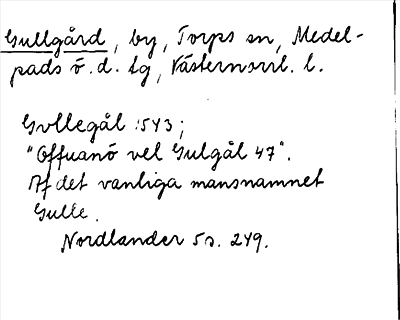 Gullgård, by, Torps sn, Medel-
pads ö. d. tg, Västernorrl. l.
Gvllegål 1543;
"Offuanö vel Gulgål 47".
Af det vanliga mansnamnet
Gulle.
Nordlander 5 s. 249.